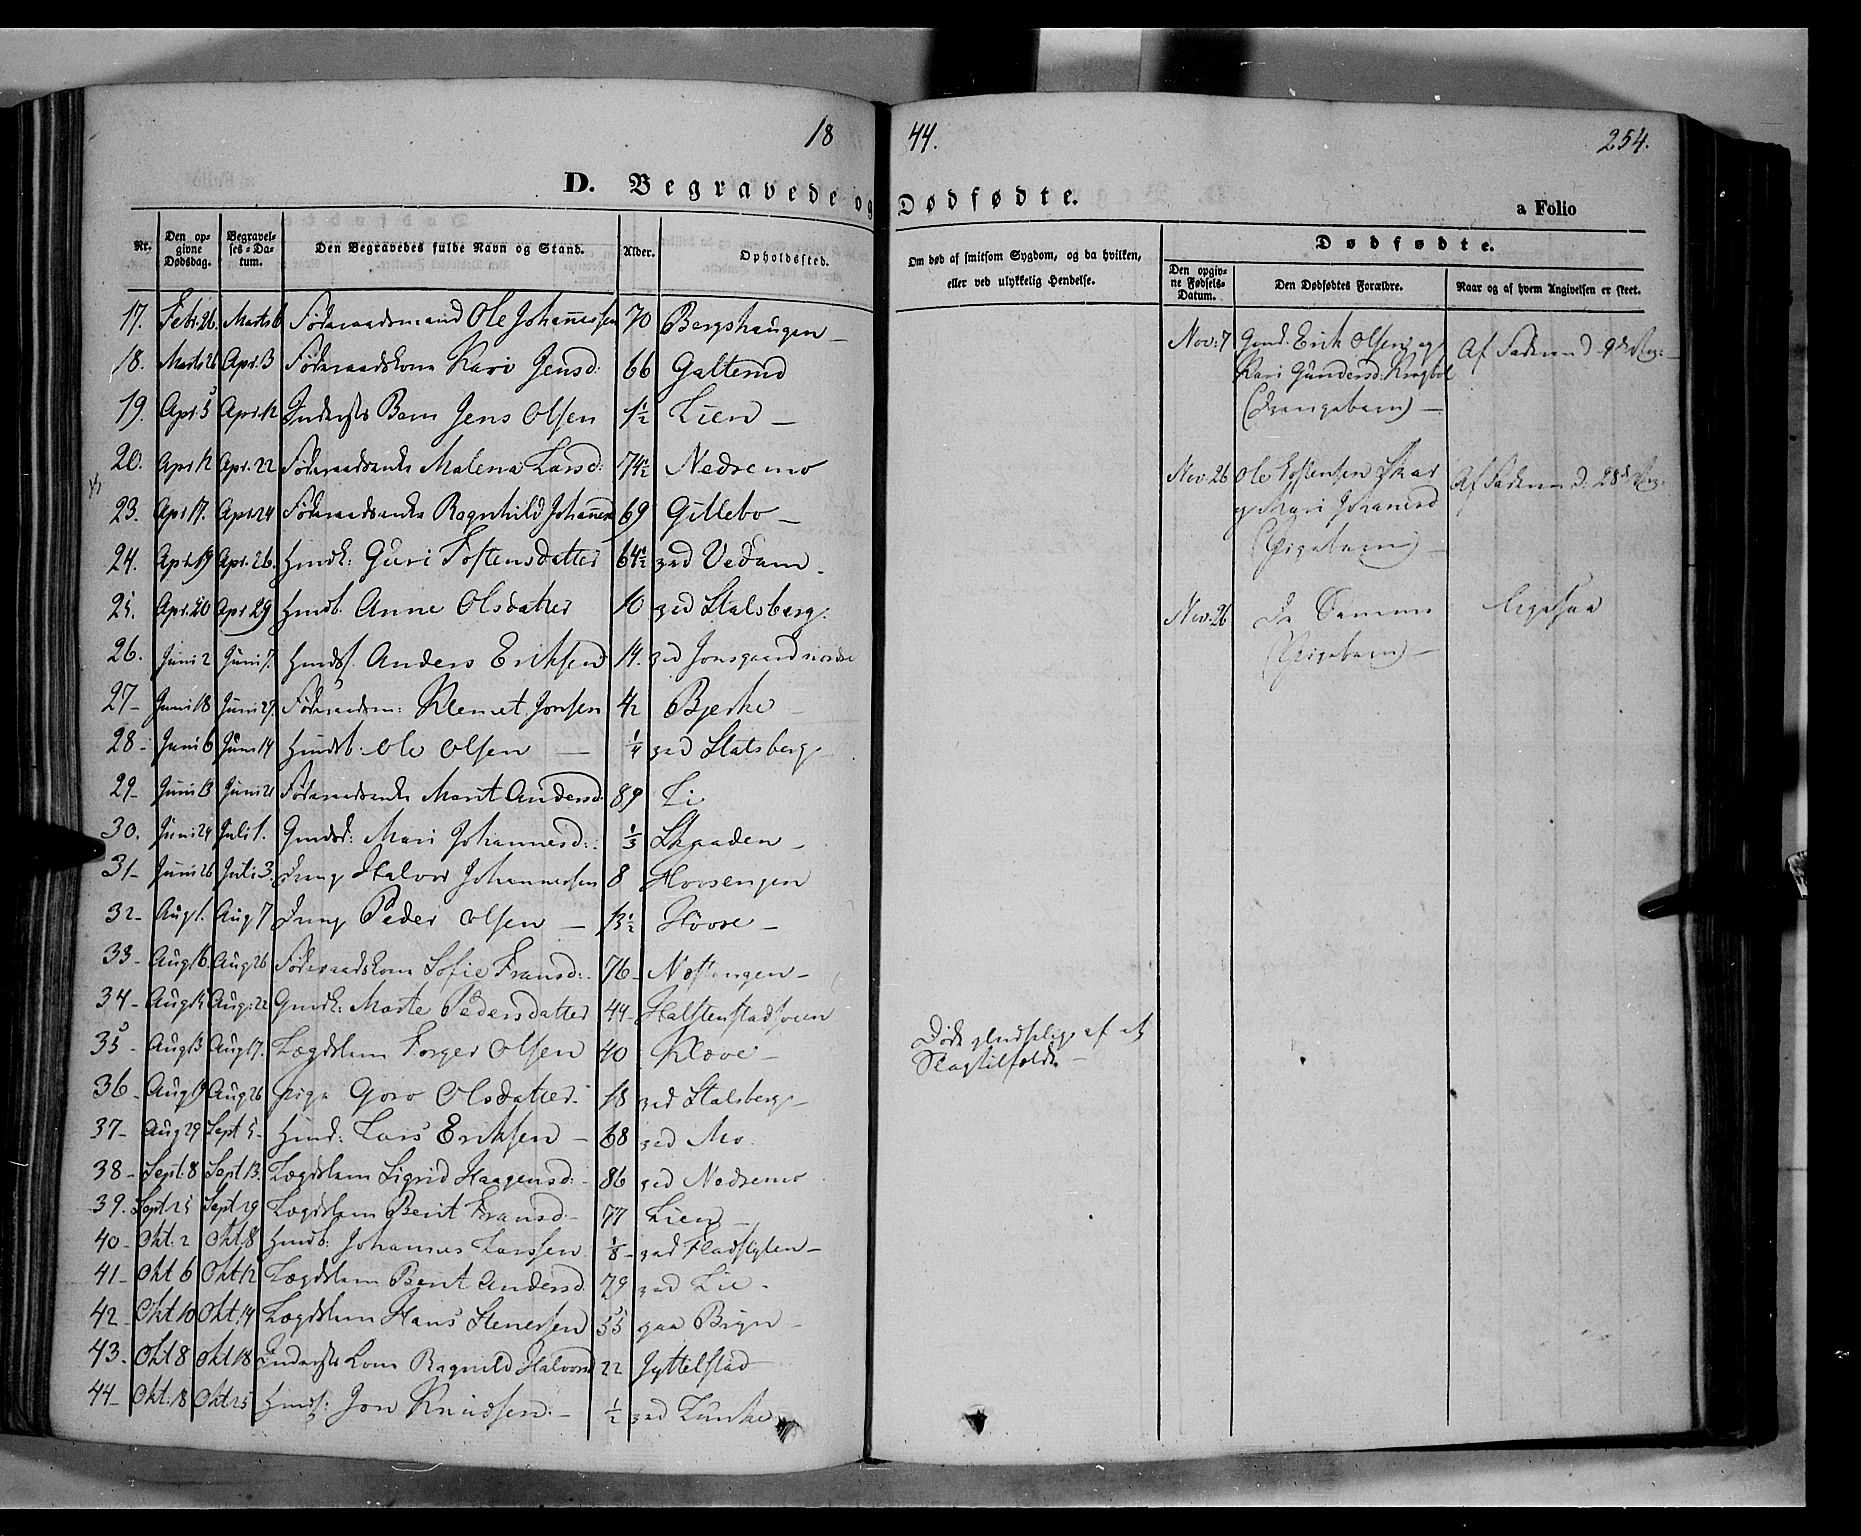 18 44. 254.
D. Begravede og Dødfødte.
a Folio
Nr. Den opgivne Dødsdag. Begravelses-Datum. Den Begravedes fulde Navn og Stand. Alder. Opholdssted. Om død af smitsom Sygdom, og da hvilken, eller ved ulykkelig Hendelse. Dødfødte. Den opgivne Fødsels-Datum. Den Dødfødtes Forældre. Naar og af hvem Angivelsen er skeet.
17. Febr. 26. Marts 6 Føderaadsmand Ole Johannessen 70 Bergshaugen
18. Marts 26 Apr. 3 Føderaadskone Kari Jensd: 66 Galterud
19. Apr. 5 Apr. 12 Inderstes Barn Jens Olsen 1½ Lien
20. Apr 12 Apr. 22 Føderaadsenke Malena Larsd: 74½ Nedremo
23. Apr 17. Apr. 24 Føderaadsenke Ragnhild Johannesd 69 Gillebo
24. Apr. 19 Apr. 26. Hmdk: Guri Tostensdatter 64½ ved Vedum.
25. Apr. 20 Apr 29 Hmdb. Anne Olsdatter 10 ved Stalsberg.
26. Juni 2 Juni 7. Hmdsf. Anders Eriksen 14. ved Jonsgaard nordre
27 Juni 18 Juni 27. Føderaadsm: Klemet Jonsen 42 Bjerke
28 Juni 6 Juni 14 Hmdsb. Ole Olsen ¼ ved Stalsberg
29 Juni 13 Juni 21 Føderaadsenke Marit Andersd 89 Li
30. Juni 24 Juli 1. Gmdsd: Mari Johannesd: ⅓ Skaaden
31 Juni 26 Juli 3. Dreng Halvor Johannessen 8 Hovsengen
32 Aug 1. Aug 7 Dreng Peder Olsen 13½ Hovre
33 Aug 16. Aug 26 Føderaadskone Sofie Fransd: 76 Nøstengen
34 Aug 15 Aug: 22 Gmdk: Marte Pedersdatter 44 Halstenstadsveen
35 Aug 13 Aug 17. Lægdslem Torger Olsen 40 Kløve Døde pludselig af et
Slagtilfælde
36 Aug 19 Aug 26 Pige Goro Olsdatter 18 ved Stalsberg
37 Aug 29 Sept 5 Hmd: Lars Eriksen 68 ved Mo.
38 Sept: 8 Sept 13. Lægdslem Sigrid Haagensd: 86 ved Nedremo
39. Sept 25 Sept 29 Lægdslem Berit Fransd 77 Lien
40 Okt. 2 Okt. 8 Hmdb: Johannes Larssen ⅛ ved Fladstylen
41 Okt 6 Okt. 12 Lægdslem Berit Andersd 79 ved Lie
42 Okt 10 Okt. 14 Lægdslem Hans Stenersen 55 paa Bryn
43. Okt 8 Okt 18 Inderstes Kone Ragnild Halvorsd 22 Jyttelstad
44 Okt. 18 Okt 25 Hmdsf: Jon Knudsen ½ ved Lunke
Nov: 7 Gmd. Erik Olsen og Af Faderen d. 9de
Kari Gundersd: Ringbol
(Drengebarn)
Nov. 26 Ole Tostensen Skar Af Faderen d. 28de
og Mari Johannesd
(Pigebarn)
Nov. 26 De Samme ligesaa
(Pigebarn)